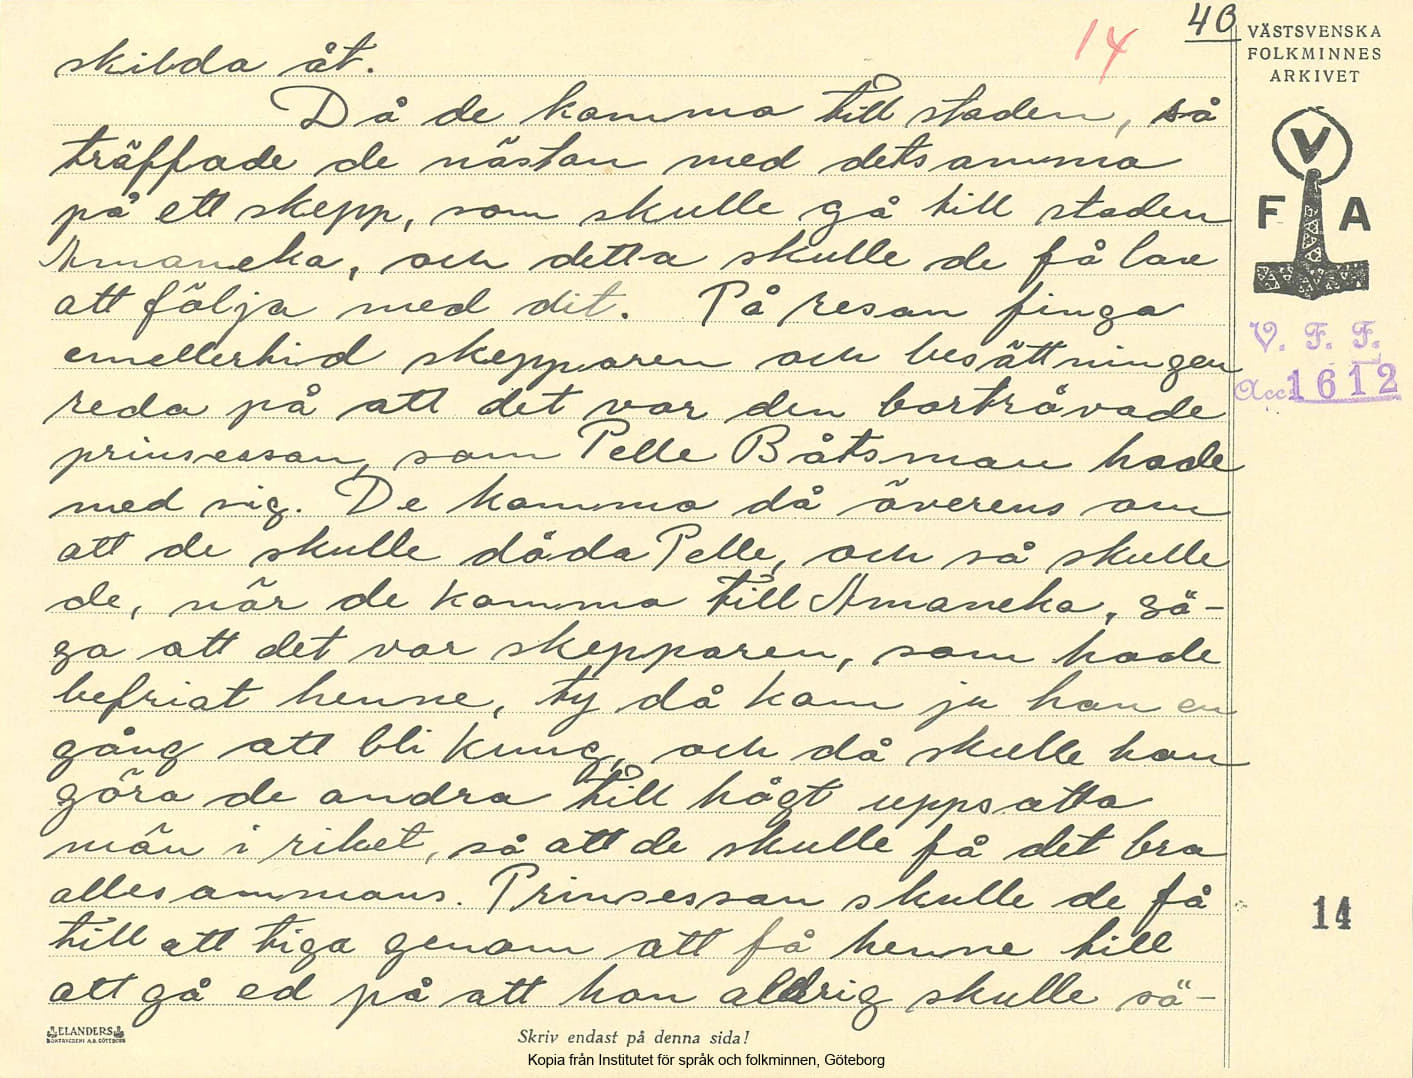 40
14
VÄSTSVENSKA
FOLKMINNES
ARKIVET
V
F A
V. F. F.
Acc. 1612
skilda åt.
Då de kommo till staden, så
träffade de nästan med detsamma
på ett skepp, som skulle gå till staden
Amaneka, och detta skulle de få lov
att följa med dit. På resan finga
emellertid skepparen och besättningen
reda på att det var den bortrövade
prinsessan, som Pelle Båtsman hade
med sig. De kommo då överens om
att de skulle döda Pelle, och så skulle
de, när de kommo till Amaneka, sä-
ga att det var skepparen, som hade
befriat henne, ty då kom ju han en
gång att bli kung, och då skulle han
göra de andra till högt uppsatta
män i riket, så att de skulle få det bra
allesammans. Prinsessan skulle de få
till att tiga genom att få henne till
att gå ed på att hon aldrig skulle sä-
14
ELANDERS
BOKTRYCKERI A.B. GÖTEBORG
Skriv endast på denna sida!
Kopia från Institutet för språk och folkminnen, Göteborg